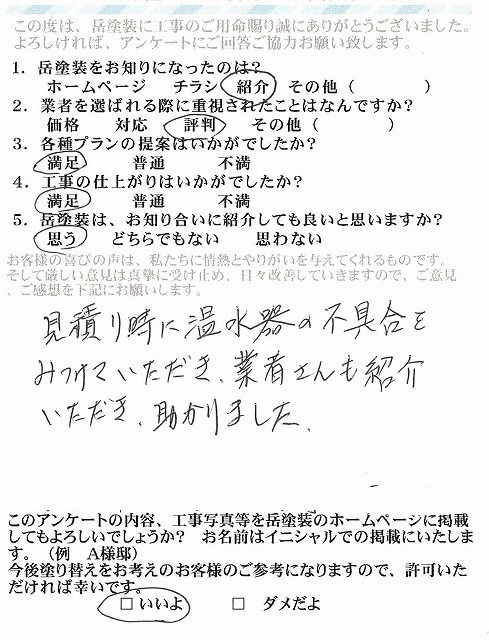 この度は、岳塗装に工事のご用命賜り誠にありがとうございました。
よろしければ、アンケートにご回答ご協力お願い致します。
1．岳塗装をお知りになったのは？
ホームページ　チラシ　紹介　その他（　　　　）
2．業者を選ばれる際に重視されたことはなんですか？
価格　対応　評判　その他（　　　　）
3．各種プランの提案はいかがでしたか？
満足　普通　不満
4．工事の仕上がりはいかがでしたか？
満足　普通　不満
5．岳塗装は、お知り合いに紹介しても良いと思いますか？
思う　どちらでもない　思わない
お客様の喜びの声は、私たちに情熱とやりがいを与えてくれるものです。
そして厳しい意見は真摯に受け止め、日々改善していきますので、ご意見
、ご感想を下記にお願いします。
見積り時に温水器の不具合を
みつけていただき、業者さんも紹介
いただき、助かりました。
このアンケートの内容、工事写真等を岳塗装のホームページに掲載
してもよろしいでしょうか？　お名前はイニシャルでの掲載にいたしま
す。（例　A様邸）
今後塗り替えをお考えのお客様のご参考になりますので、許可いた
だければ幸いです。
□いいよ　□　ダメだよ